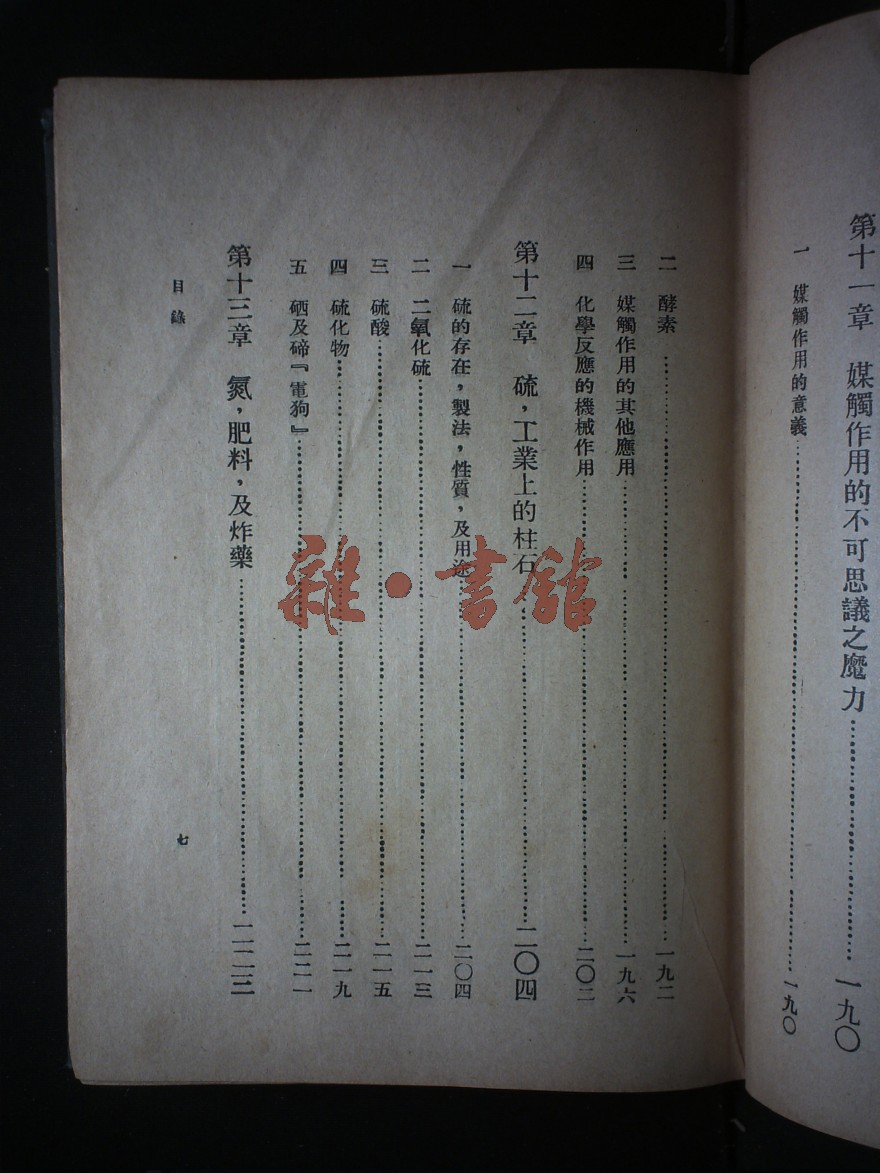 第十一章　媒觸作用的不可思議之魔力……一九〇
一　媒觸作用的意義……一九〇
二　酵素……一九二
三　媒觸作用的其他應用……一九六
四　化學反應的機械作用……二〇二
第十二章　硫，工業上的柱石……二〇四
一　硫的存在，製法，性質，及用途……二〇四
二　二氧化硫……二一三
三　硫酸……二一五
四　硫化物……二一九
五　硒及碲『電狗』……二二一
第十三章　氮，肥料，及炸藥……二二三
目錄　七
雜·書館